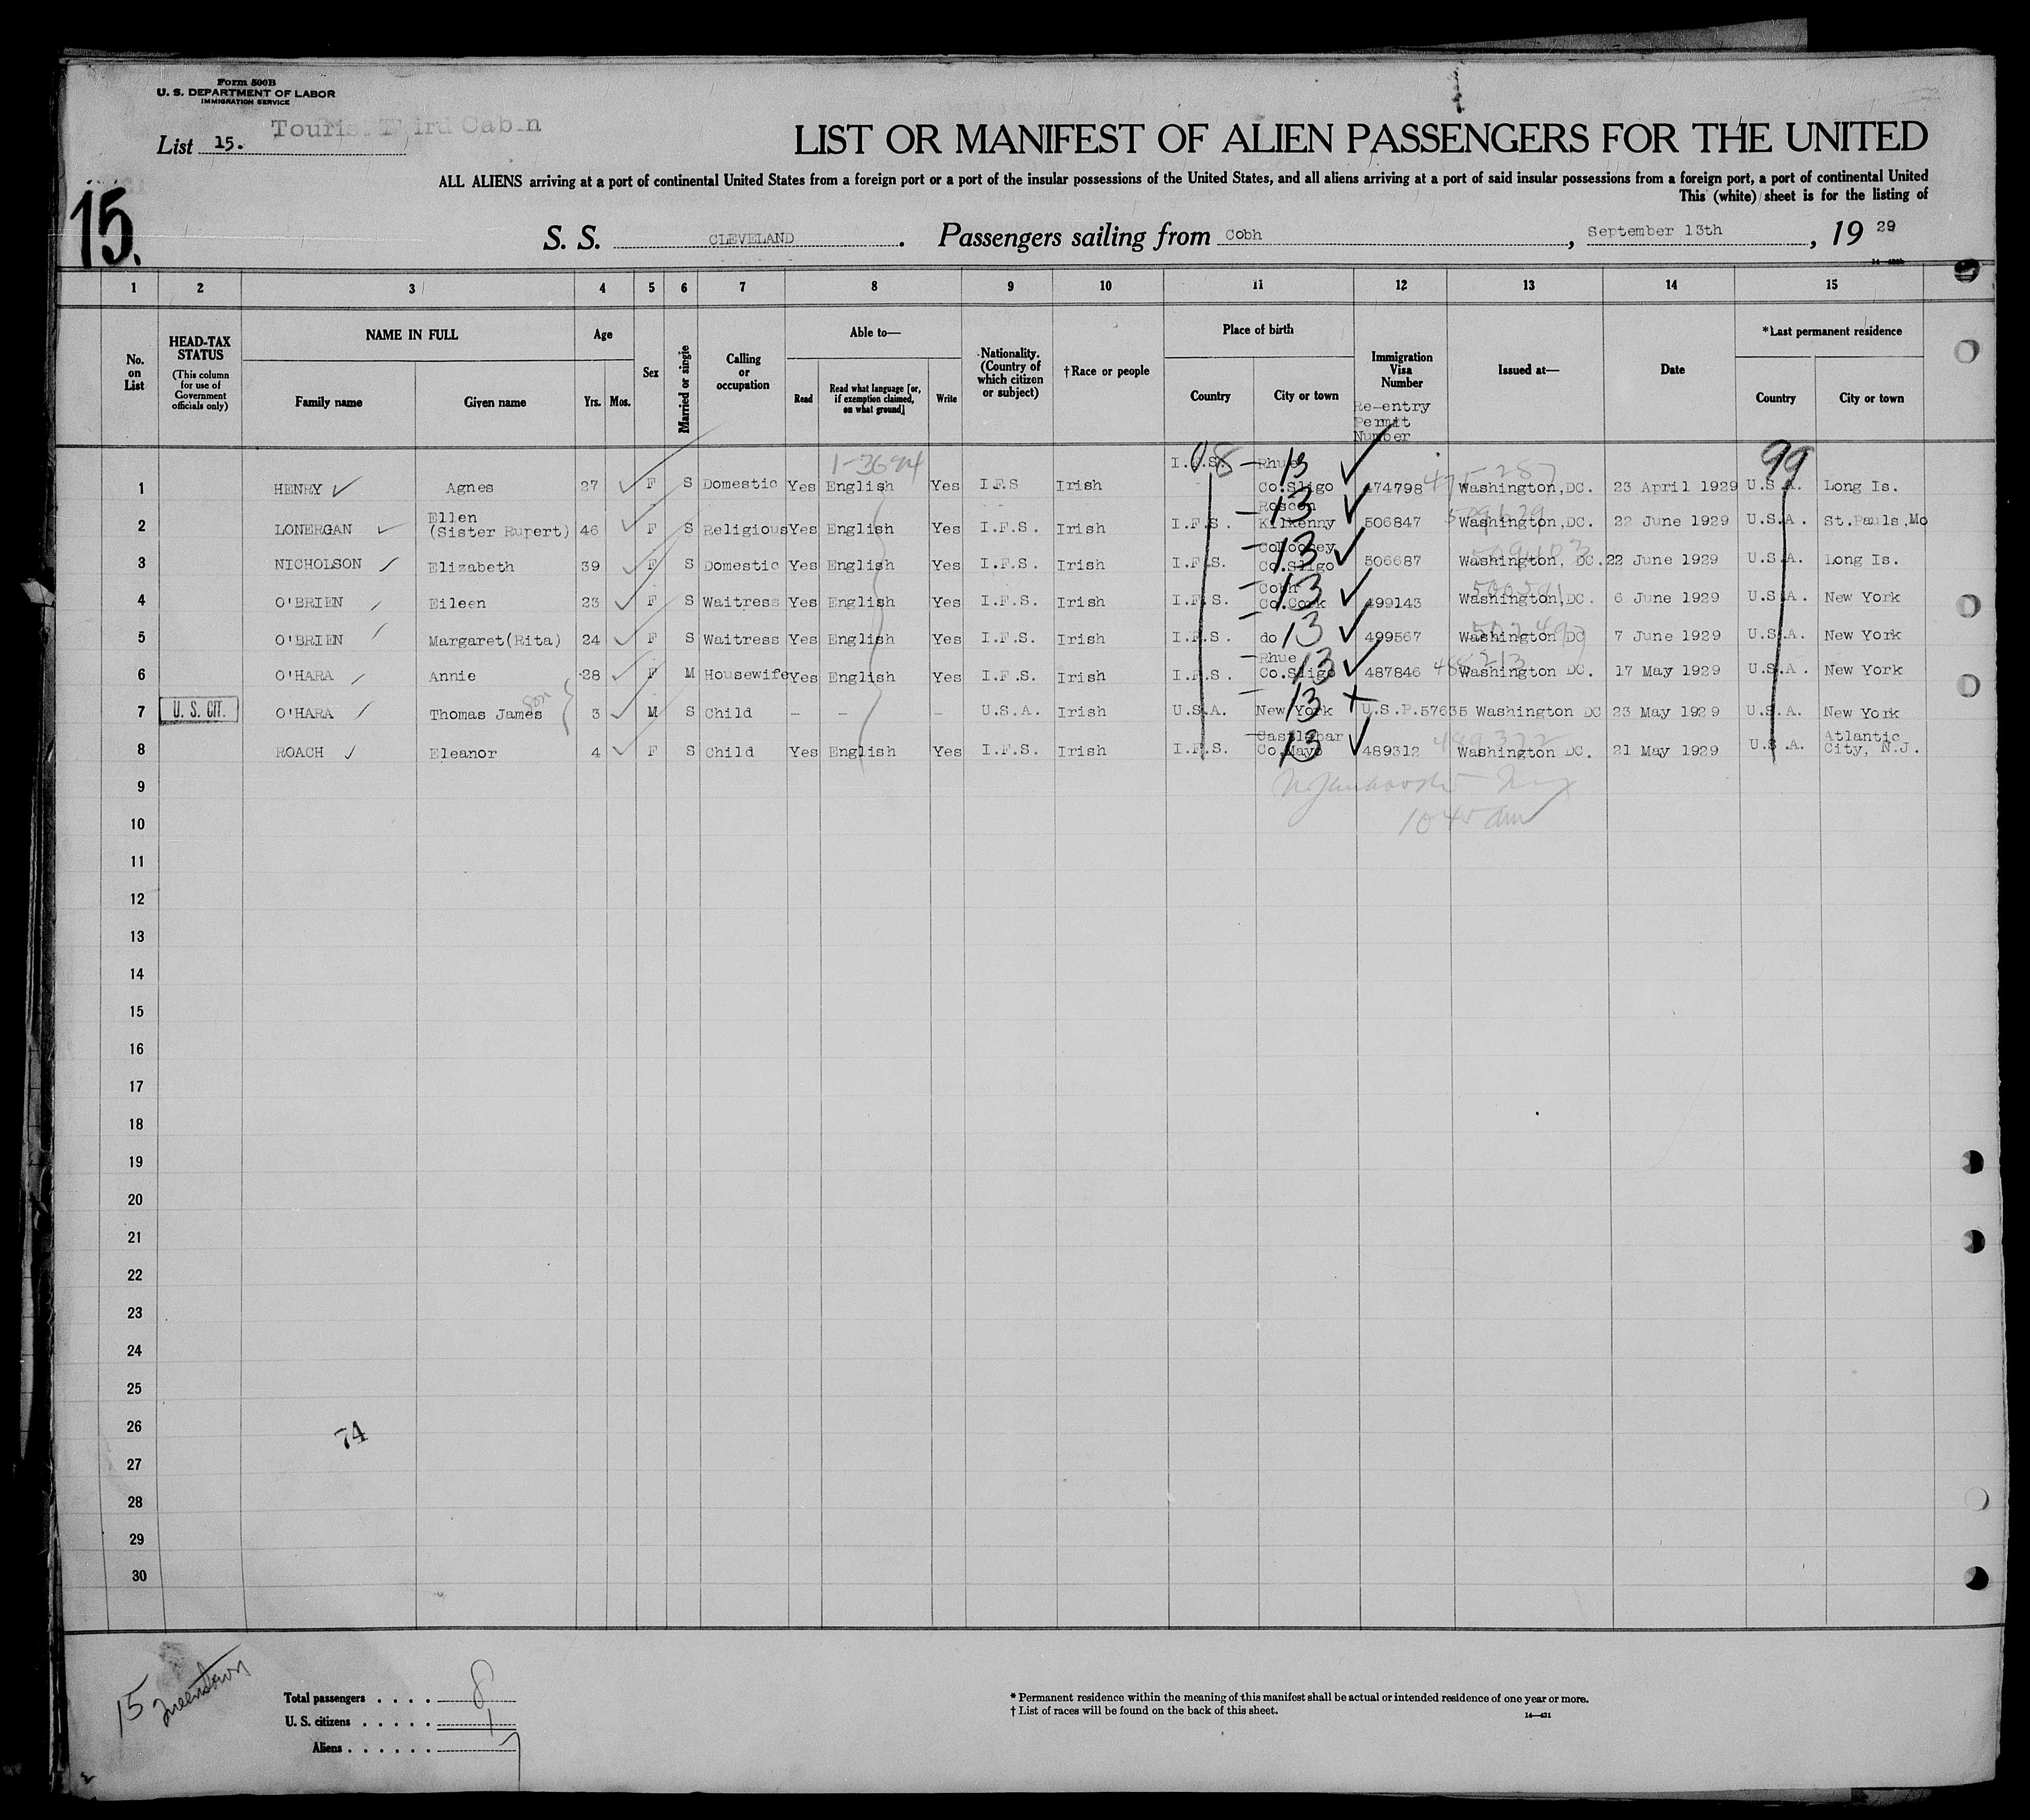 Form 500B
U. S. DEPARTMENT OF LABOR
IMMIGRATION SERVICE
Tourist Third Cabin
List 15.
LIST OR MANIFEST OF ALIEN PASSENGERS FOR THE UNITED
ALL ALIENS arriving at a port of continental United States from a foreign port or a port of the insular possessions of the United States, and all aliens arriving at a port of said insular possessions from a foreign port, a port of continental United
This (white) sheet is for the listing of
15.
S. S. CLEVELAND. Passengers sailing from Cobh, September 13th, 19 29
1 2 3 4 5 6 7 8 9 10 11 12 13 14 15
No. on List
HEAD-TAX STATUS
(This column for use of Government officials only)
NAME IN FULL
Family name
Given name
Age
Yrs. Mos.
Sex
Married or single
Calling or occupation
Able to—
Read
Read what language [or, if exemption claimed, on what ground]
Write
Nationality. (Country of which citizen or subject)
†Race or people
Place of birth
Country
City or town
Immigration Visa Number
Re-entry Permit Number
Issued at—
Date
*Last permanent residence
Country
City or town
1-3694
08
99
1 HENRY Agnes 27 F S Domestic Yes English Yes I.F.S Irish I.F.S. Rhue Co.Sligo 13 474798 475287 Washington,DC. 23 April 1929 U.S.A. Long Is.
2 LONERGAN Ellen (Sister Rupert) 46 F S Religious Yes English Yes I.F.S. Irish I.F.S. Kilkenny 13 506847 Washington,DC. 22 June 1929 U.S.A. St.Pauls,Mo
3 NICHOLSON Elizabeth 39 F S Domestic Yes English Yes I.F.S. Irish I.F.S. Collooney Co.Sligo 13 506687 Washington, DC. 22 June 1929 U.S.A. Long Is.
4 O'BRIEN Eileen 23 F S Waitress Yes English Yes I.F.S. Irish I.F.S. Cobh Co.Cork 13 499143 Washington,DC. 6 June 1929 U.S.A. New York
5 O'BRIEN Margaret(Rita) 24 F S Waitress Yes English Yes I.F.S. Irish I.F.S. do 13 499567 Washington DC 7 June 1929 U.S.A. New York
6 O'HARA Annie 28 F M Housewife Yes English Yes I.F.S. Irish I.F.S. Rhue Co.Sligo 13 487846 488213 Washington DC. 17 May 1929 U.S.A. New York
7 U. S. CIT. O'HARA Thomas James son 3 M S Child - - - U.S.A. Irish U.S.A. New York 13 U.S.P.57635 Washington DC 23 May 1929 U.S.A. New York
8 ROACH Eleanor 4 F S Child Yes English Yes I.F.S. Irish I.F.S. Castlebar Co.Mayo 13 489312 489322 Washington DC. 21 May 1929 U.S.A. Atlantic City, N.J.
9
10
1045 am
11
12
13
14
15
16
17
18
19
20
21
22
23
24
25
26
74
27
28
29
30
15 Queenstown
Total passengers . . . . 8
U. S. citizens . . . . . 1
Aliens . . . . . . 7
* Permanent residence within the meaning of this manifest shall be actual or intended residence of one year or more.
† List of races will be found on the back of this sheet.
14—431